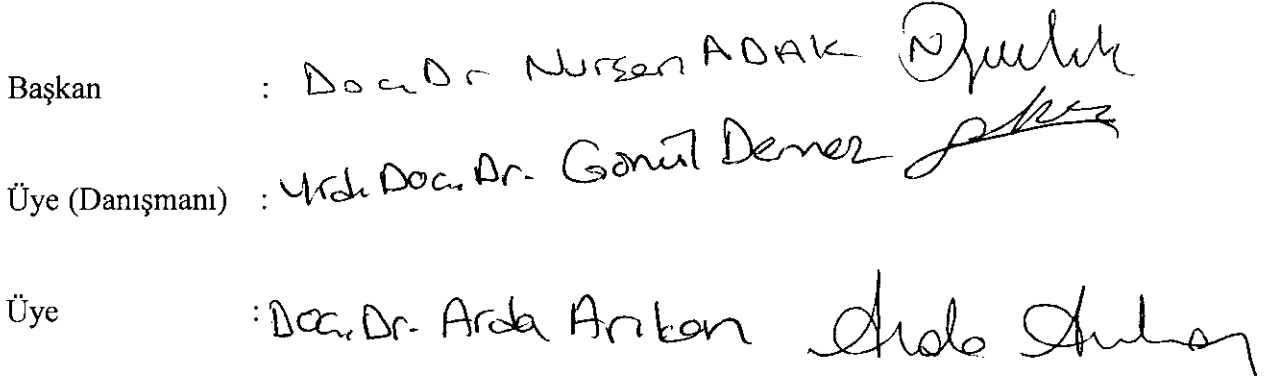 Başkan : Doç. Dr Nurşen ADAK
Üye (Danışmanı) : Yrd. Doç. Dr. Gönül Demez
Üye : Doç. Dr. Arda Arıkan Arda Arıkan